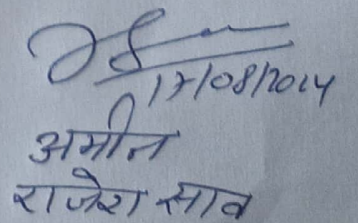 17/08/2014
अमीन
राजेश साव